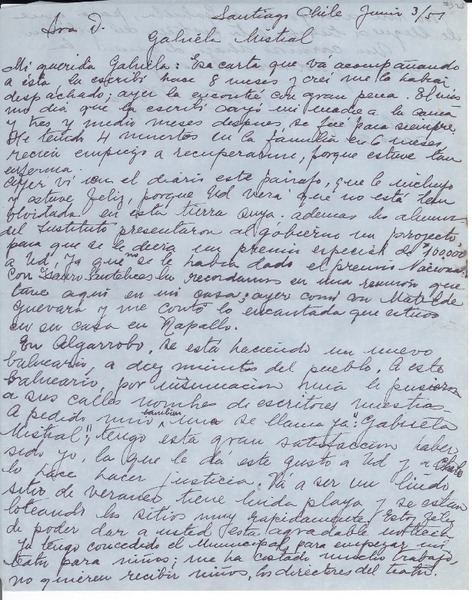 Santiago Chile Junio 3/51
Sra D.
Gabriela Mistral
Mi querida Gabriela: Esa carta que va acompañando
a ésta la escribí hace 8 meses y creí me la había
despachado; ayer la encontré con gran pena. El mis
mo día que la escribí cayó mi madre a la cama
y tres y medio meses después, se fué para siempre
He tenido 4 muertos en la familia en 6 meses
recién empiezo a recuperarme, porque estuve tan
enferma.
Ayer vi en el diario este párrafo, que le incluyo
y estuve feliz, porque Ud verá que no está tan
olvidada en esta tierra suya. además los alumnos
del Instituto presentaron al gobierno un proyecto
para que se le diera un premio especial de $100.000
a Ud, ya que no se le había dado el premio Nacional
Con la recordamos en una reunión que
tuve aquí en mi casa; ayer comí con Matilde
Guevara y me contó lo encantada que estuvo
en su casa en Rapallo.
En Algarrobo, se está haciendo un nuevo
balneario, a diez minutos del pueblo. A este
balneario, por insinuación mía le pusieron
a sus calles nombres de escritores nuestros
A pedido mío también una se llama ya "Gabriela
Mistral", tengo esta gran satisfacción haber
sido yo, la que le dá este gusto a Ud y a Chile
lo hace hacer justicia. Va a ser un lindo
sitio de veraneo tiene linda playa y se están
loteando los sitios muy rápidamente. Estoy feliz
de poder dar a usted esta agradable noticia
Ya tengo concedido el Municipal, para empezar mi
teatro para niños; me ha costado mucho trabajo,
no quieren recibir niños, los directores del teatro.